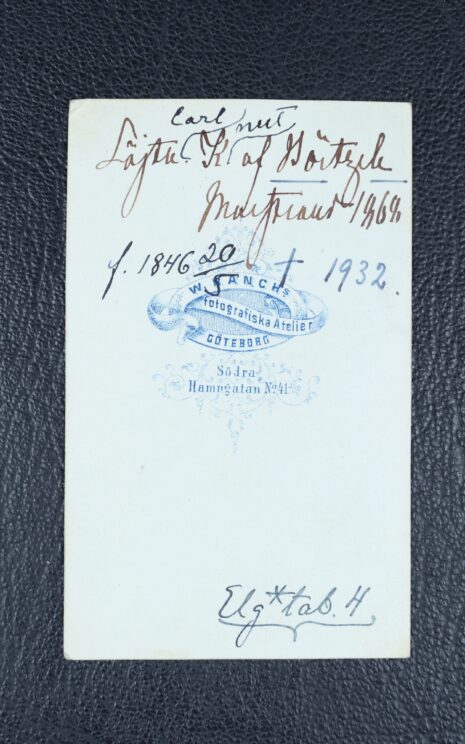 Carl nut
Löjtn. K af Börtzell
Marstrand 1868
f. 1846 20/5 † 1932.
fotografiska Atelier
GÖTEBORG
Södra
Hamngatan No. 41
Elg* tab. 4.